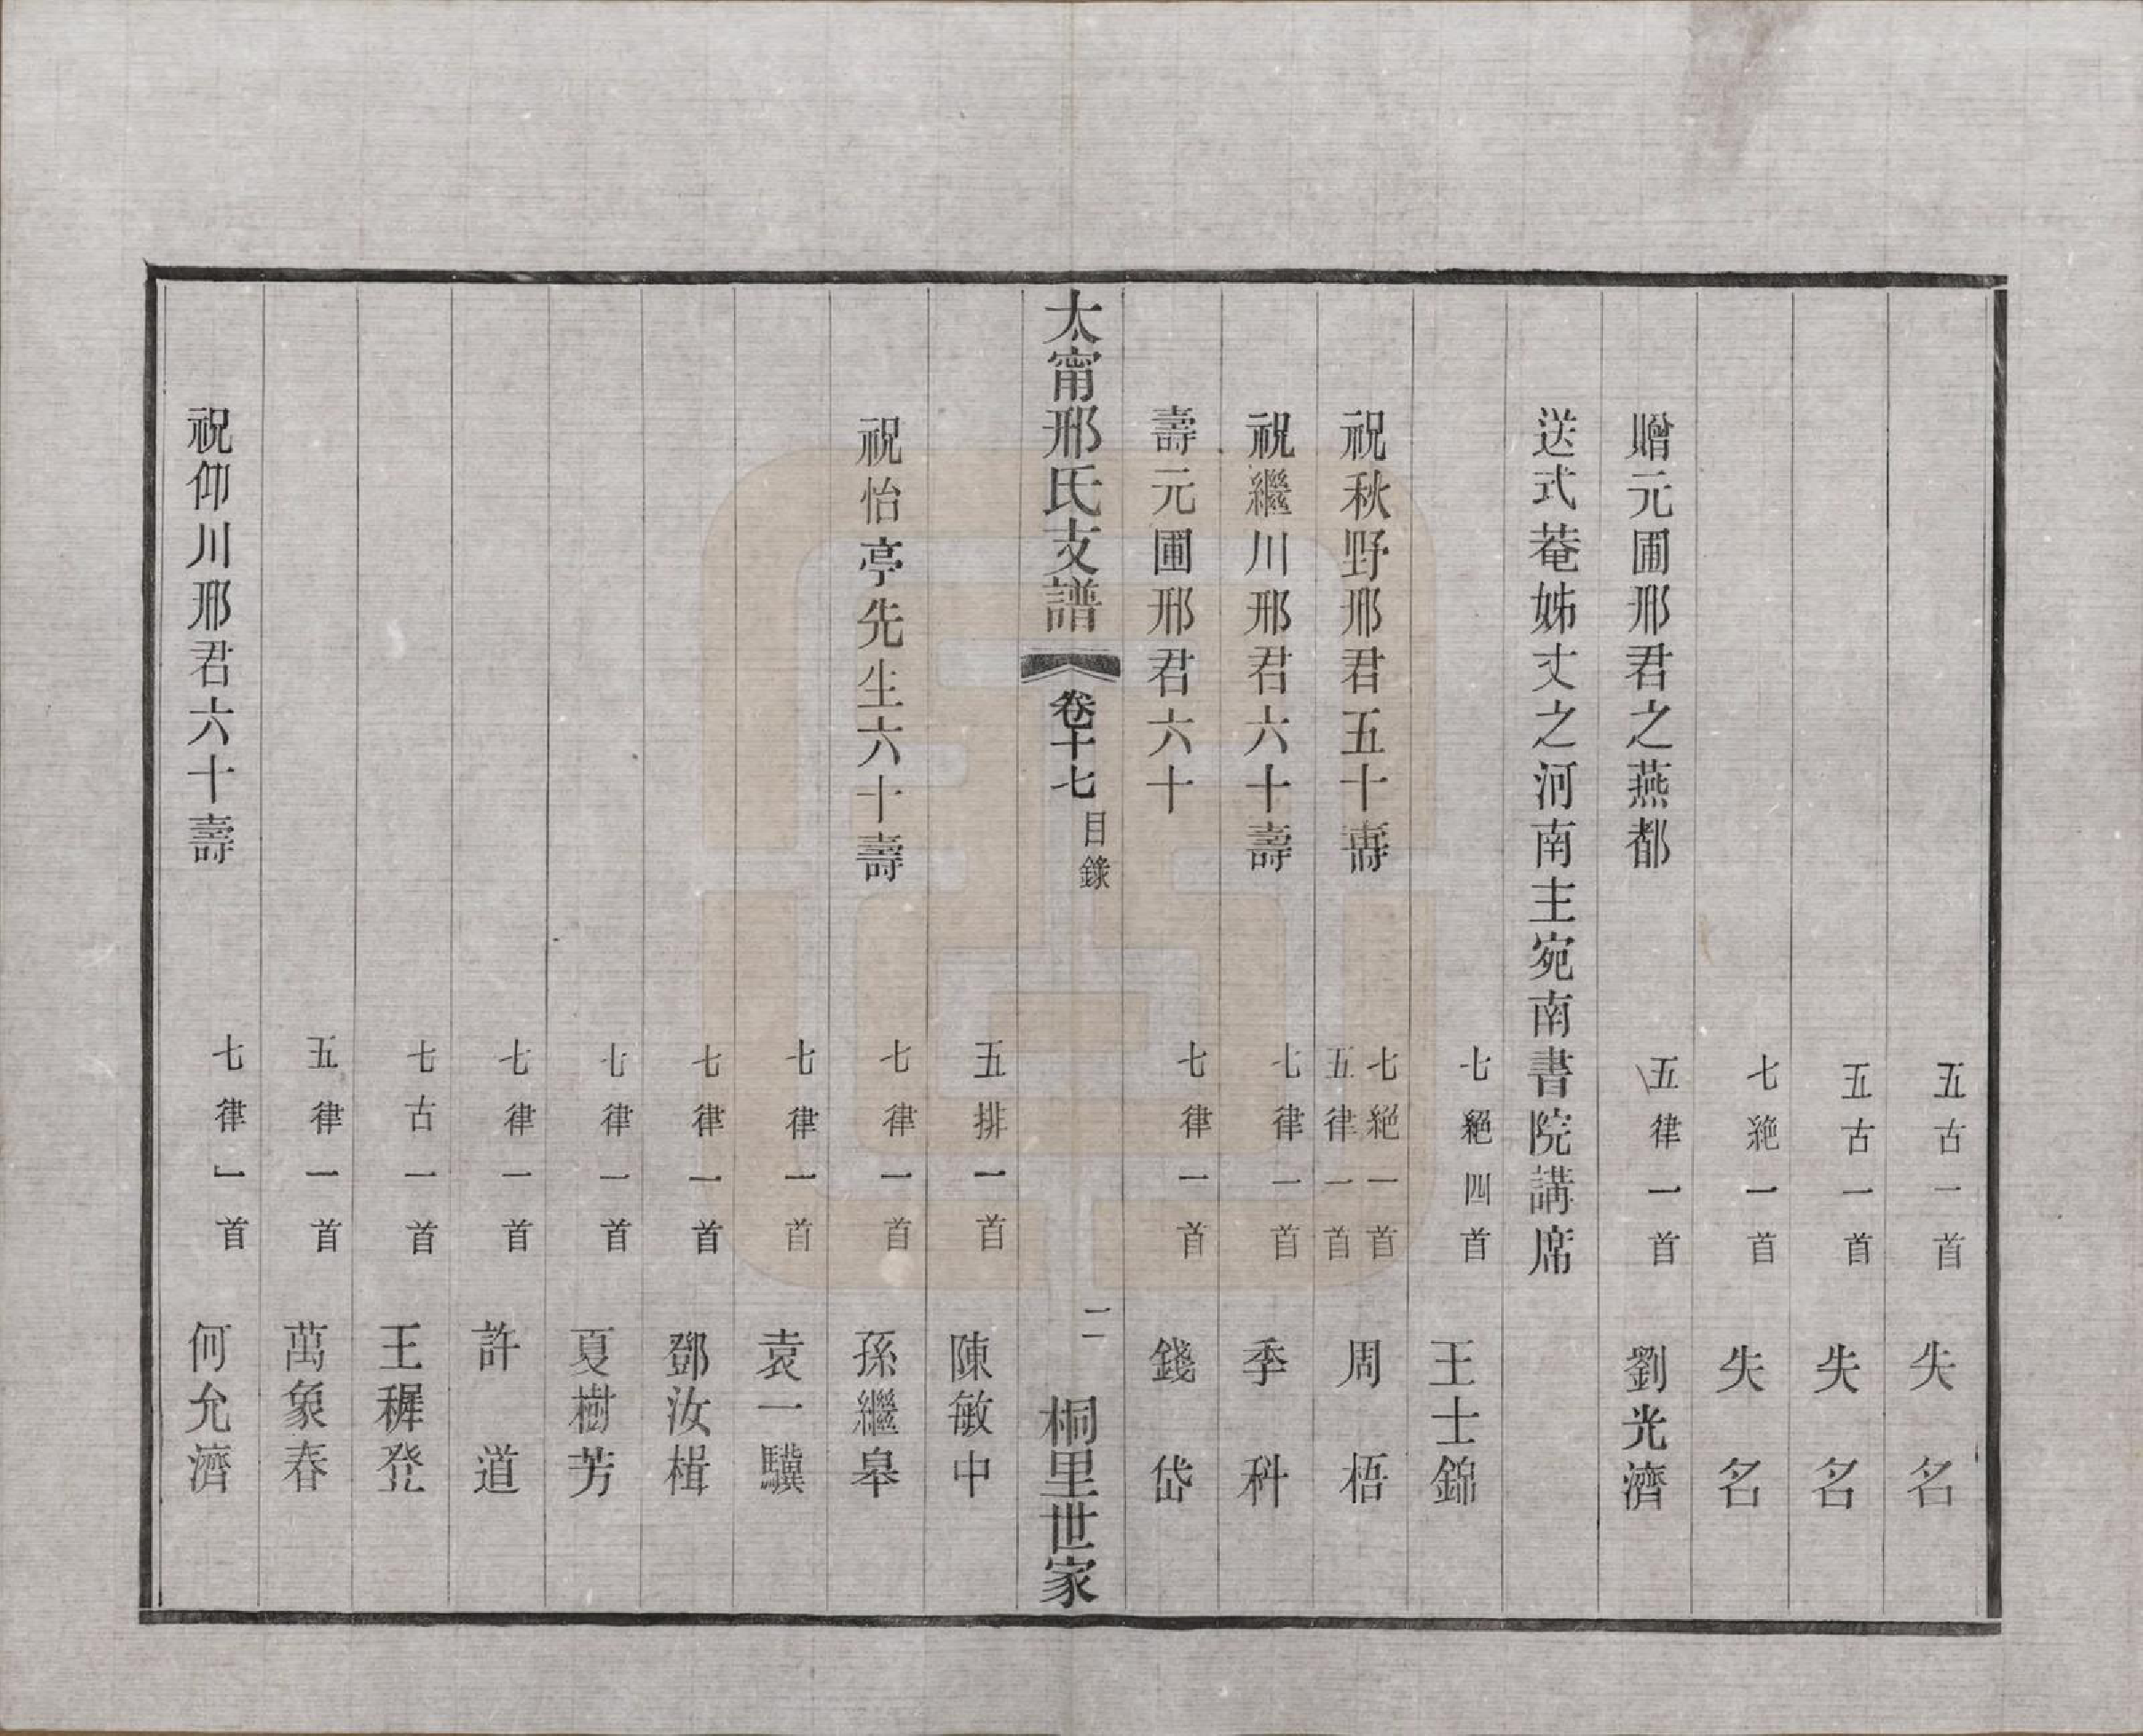 五古一首　失名
五古一首　失名
七絶一首　失名
贈元圃邢君之燕都　五律一首　劉光濟
送式菴姊丈之河南主宛南書院講席
七絶四首　王士錦
祝秋野邢君五十壽　七絶一首　五律一首　周梧
祝繼川邢君六十壽　七律一首　季科
壽元圃邢君六十　七律一首　錢岱
太甯邢氏支譜　卷十七　目錄　二　桐里世家
五排一首　陳敏中
祝怡亭先生六十壽　七律一首　孫繼皋
七律一首　袁一驥
七律一首　鄧汝楫
七律一首　夏樹芳
七律一首　許道
七古一首　王穉登
五律一首　萬象春
祝仰川邢君六十壽　七律一首　何允濟